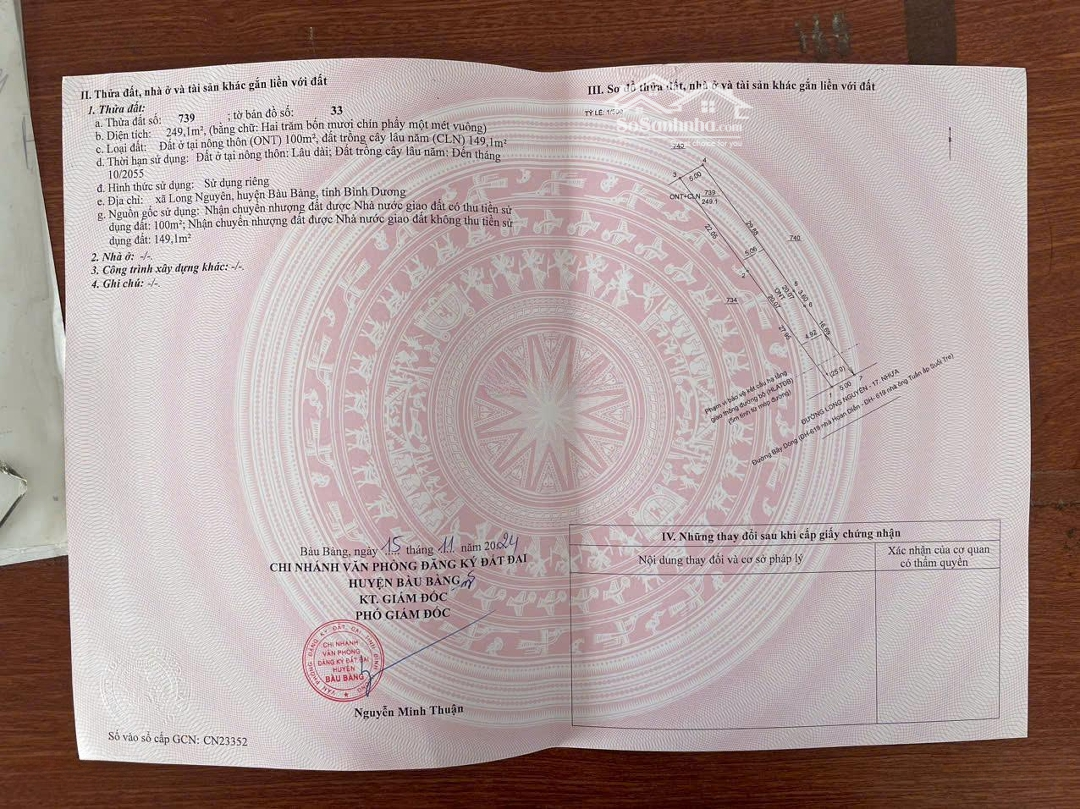 II. Thửa đất, nhà ở và tài sản khác gắn liền với đất
1. Thửa đất:
a. Thửa đất số: 739 ; tờ bản đồ số: 33
b. Diện tích: 249,1m², (bằng chữ: Hai trăm bốn mươi chín phẩy một mét vuông)
c. Loại đất: Đất ở tại nông thôn (ONT) 100m², đất trồng cây lâu năm (CLN) 149,1m²
d. Thời hạn sử dụng: Đất ở tại nông thôn: Lâu dài; Đất trồng cây lâu năm: Đến tháng
10/2055
đ. Hình thức sử dụng: Sử dụng riêng
e. Địa chỉ: xã Long Nguyên, huyện Bàu Bàng, tỉnh Bình Dương
g. Nguồn gốc sử dụng: Nhận chuyển nhượng đất được Nhà nước giao đất có thu tiền sử
dụng đất: 100m²; Nhận chuyển nhượng đất được Nhà nước giao đất không thu tiền sử
dụng đất: 149,1m²
2. Nhà ở: -/-.
3. Công trình xây dựng khác: -/-.
4. Ghi chú: -/-.
Bàu Bàng, ngày 15 tháng 11 năm 2024
CHI NHÁNH VĂN PHÒNG ĐĂNG KÝ ĐẤT ĐAI
HUYỆN BÀU BÀNG
KT. GIÁM ĐỐC
PHÓ GIÁM ĐỐC
CHI NHÁNH
VĂN PHÒNG
ĐĂNG KÝ ĐẤT ĐAI
HUYỆN
BÀU BÀNG
Nguyễn Minh Thuận
Số vào sổ cấp GCN: CN23352
III. Sơ đồ thửa đất, nhà ở và tài sản khác gắn liền với đất
TỶ LỆ:
SoSanhnha.com
740
4
3
5.00
ONT+CLN
739
249.1
22.05
29.88
740
5.06
2
5
734
ONT
20.07
20.07
3.60
6
27.95
16.89
4.92
1
(25.0)
7
5.00
Phạm vi bảo vệ kết cấu hạ tầng
giao thông đường bộ (HLATĐB)
(5m tính từ mép đường)
ĐƯỜNG LONG NGUYÊN - 17. NHỰA
Đường Bảy Dong (ĐH-619 nhà Hoàn Diễn - ĐH- 619 nhà ông Tuấn ấp Suối Tre)
IV. Những thay đổi sau khi cấp giấy chứng nhận
Nội dung thay đổi và cơ sở pháp lý
Xác nhận của cơ quan
có thẩm quyền